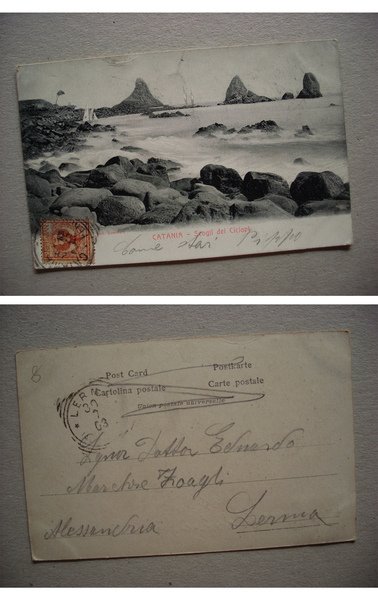 CATANIA - Scogli dei Ciclopi
Come stai
Post Card Postkarte
Cartolina postale Carte postale
Union postale universelle
LERMA
Signor Dottor Edoardo
Marchese Zoagli
Alessandria Lerma